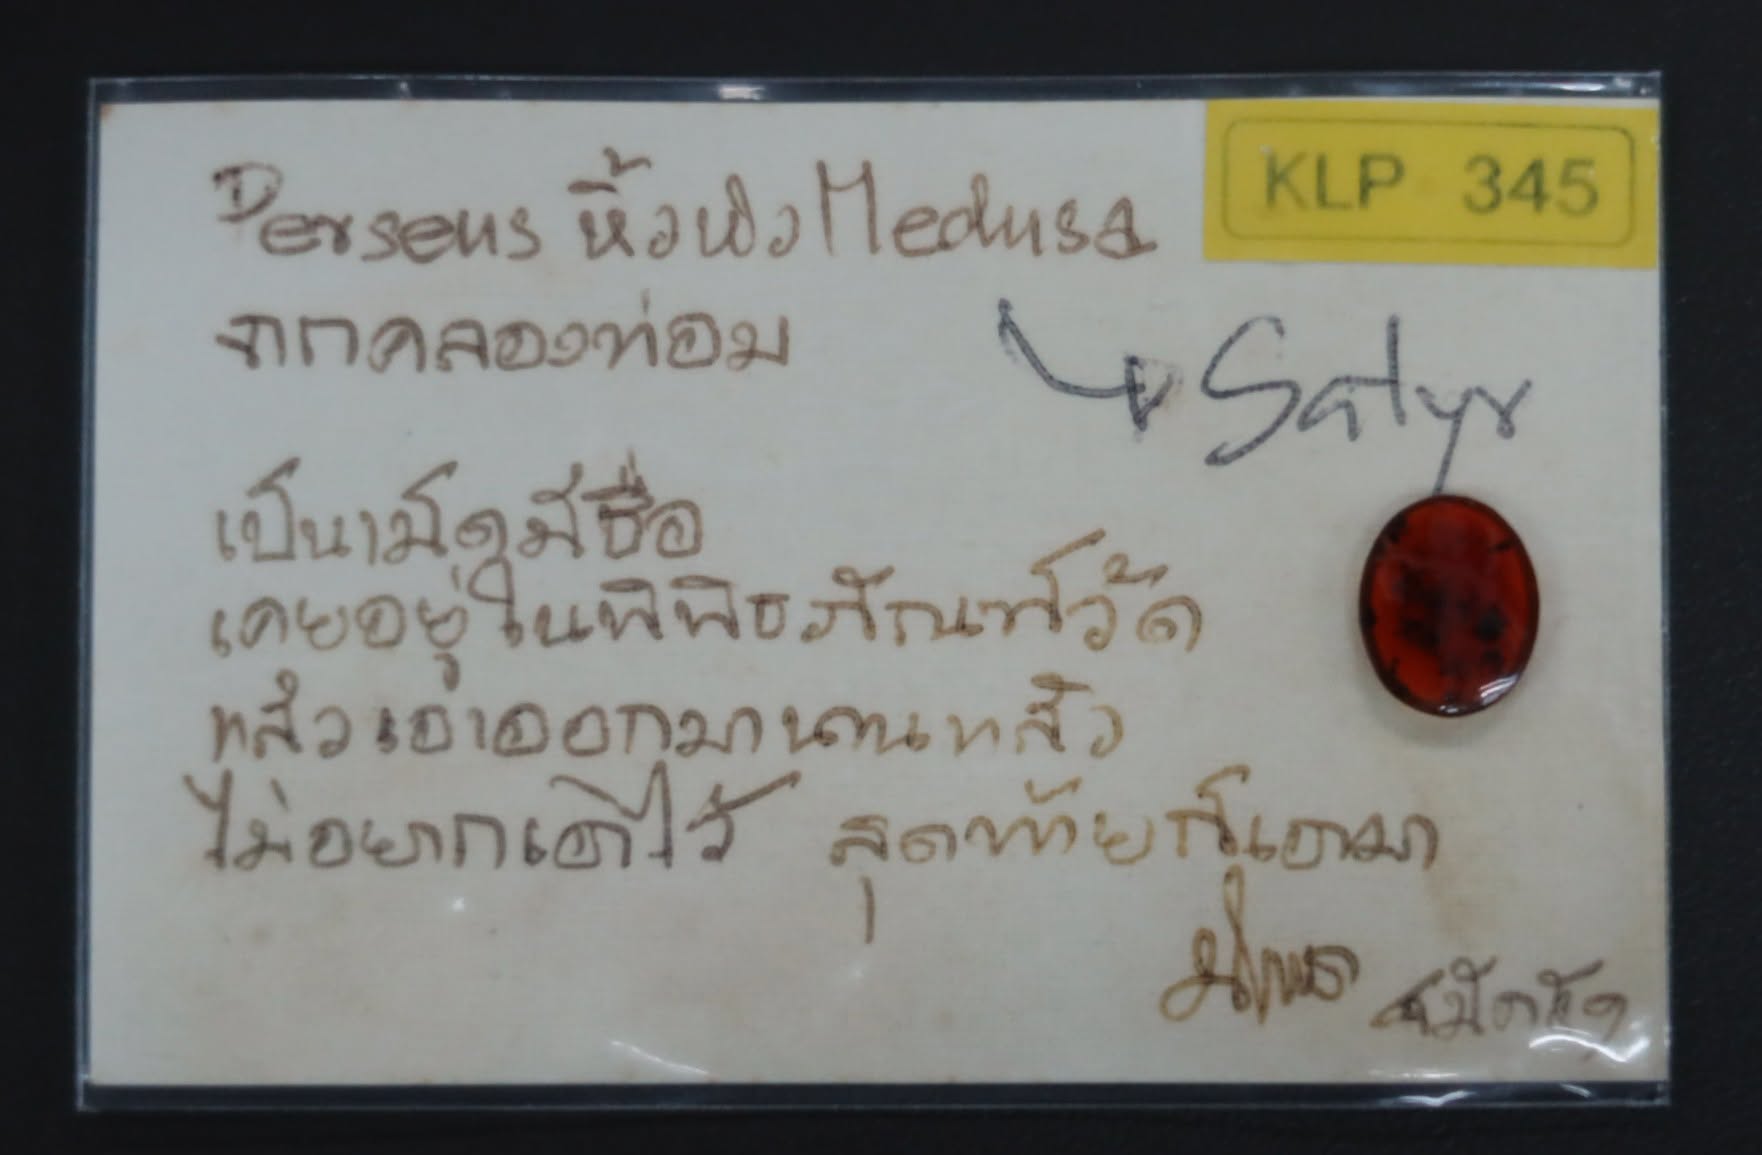 KLP 345
Perseus หิ้วหัว Medusa
จากคลองท่อม
Satyr
เป็นเม็ดมีชื่อ
เคยอยู่ในพิพิธภัณฑ์วัด
แล้วเอาออกมานานแล้ว
ไม่อยากเอาไว้ สุดท้ายก็เอามา